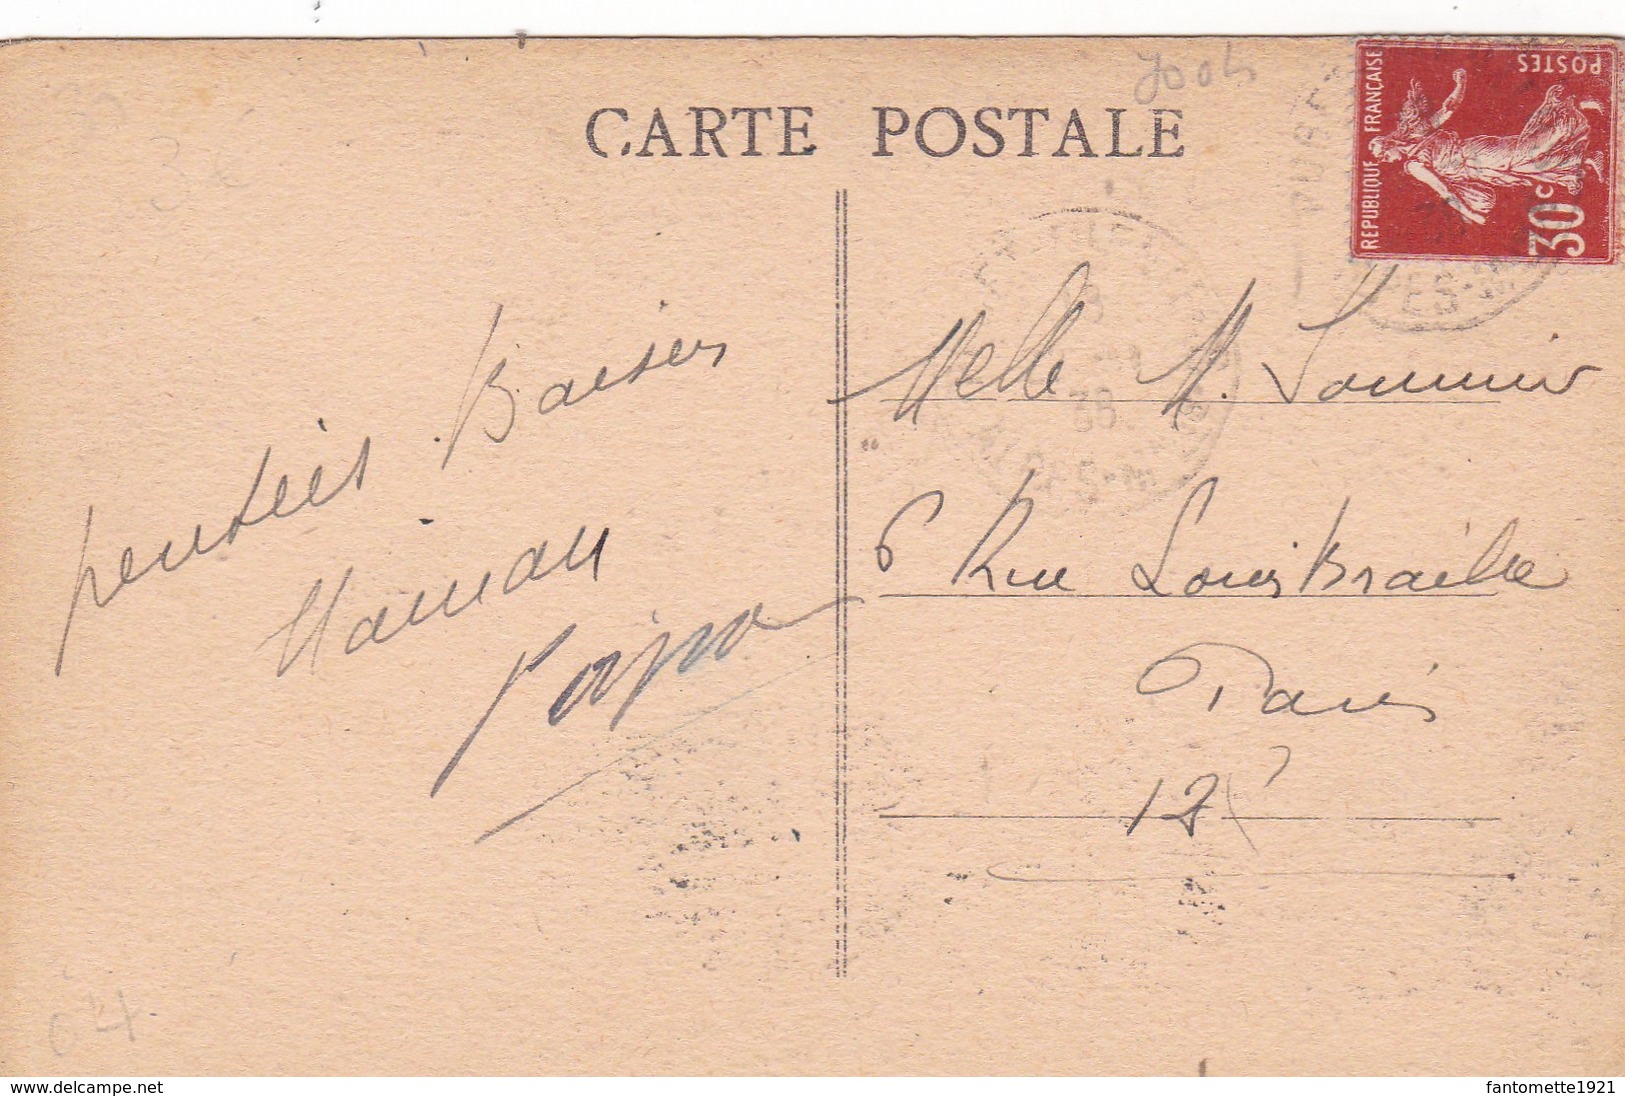 CARTE POSTALE
REPUBLIQUE FRANÇAISE
POSTES
30c
3 €
pensées Baisers
Maman
Melle M.
6 Rue Louis Braille
Paris
12
38
64
www.delcampe.net
fantomette1921